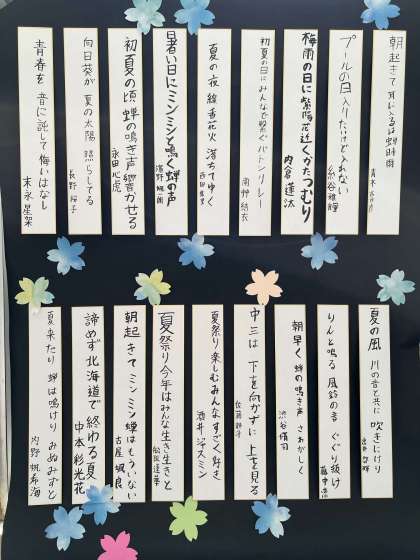 朝起きて 耳に入るは蝉時雨
青木
プールの日 入りたけど入れない
梅雨の日に紫陽花近くかたつむり
内倉 蓮汰
初夏の日にみんなで繋ぐバトンリレー
南 結衣
夏の夜 線香花火 落ちてゆく
西田
暑い日にミンミンと鳴く蝉の声
濱野 颯一朗
初夏の頃 蝉の鳴き声響かせる
永田 心虎
向日葵が 夏の太陽 照らしてる
長野 桜子
青春を 音に託して悔いはなし
末永 星架
夏の風 川の音と共に 吹きにけり
りんと鳴る 風鈴の音 くぐり抜け
藤中
朝早く 蝉の鳴き声 さわがしく
渋谷 脩司
中三は 下を向かずに 上を見る
佐藤
夏祭り楽しむみんなすごく好き
酒井 ジャスミン
夏祭り今年はみんな生き生きと
朝起きてミンミン蝉はもういない
古屋 颯良
諦めず北海道で終わる夏
中本 彩光花
夏来たり 蝉は鳴けり みぬみずと
内野 帆希海